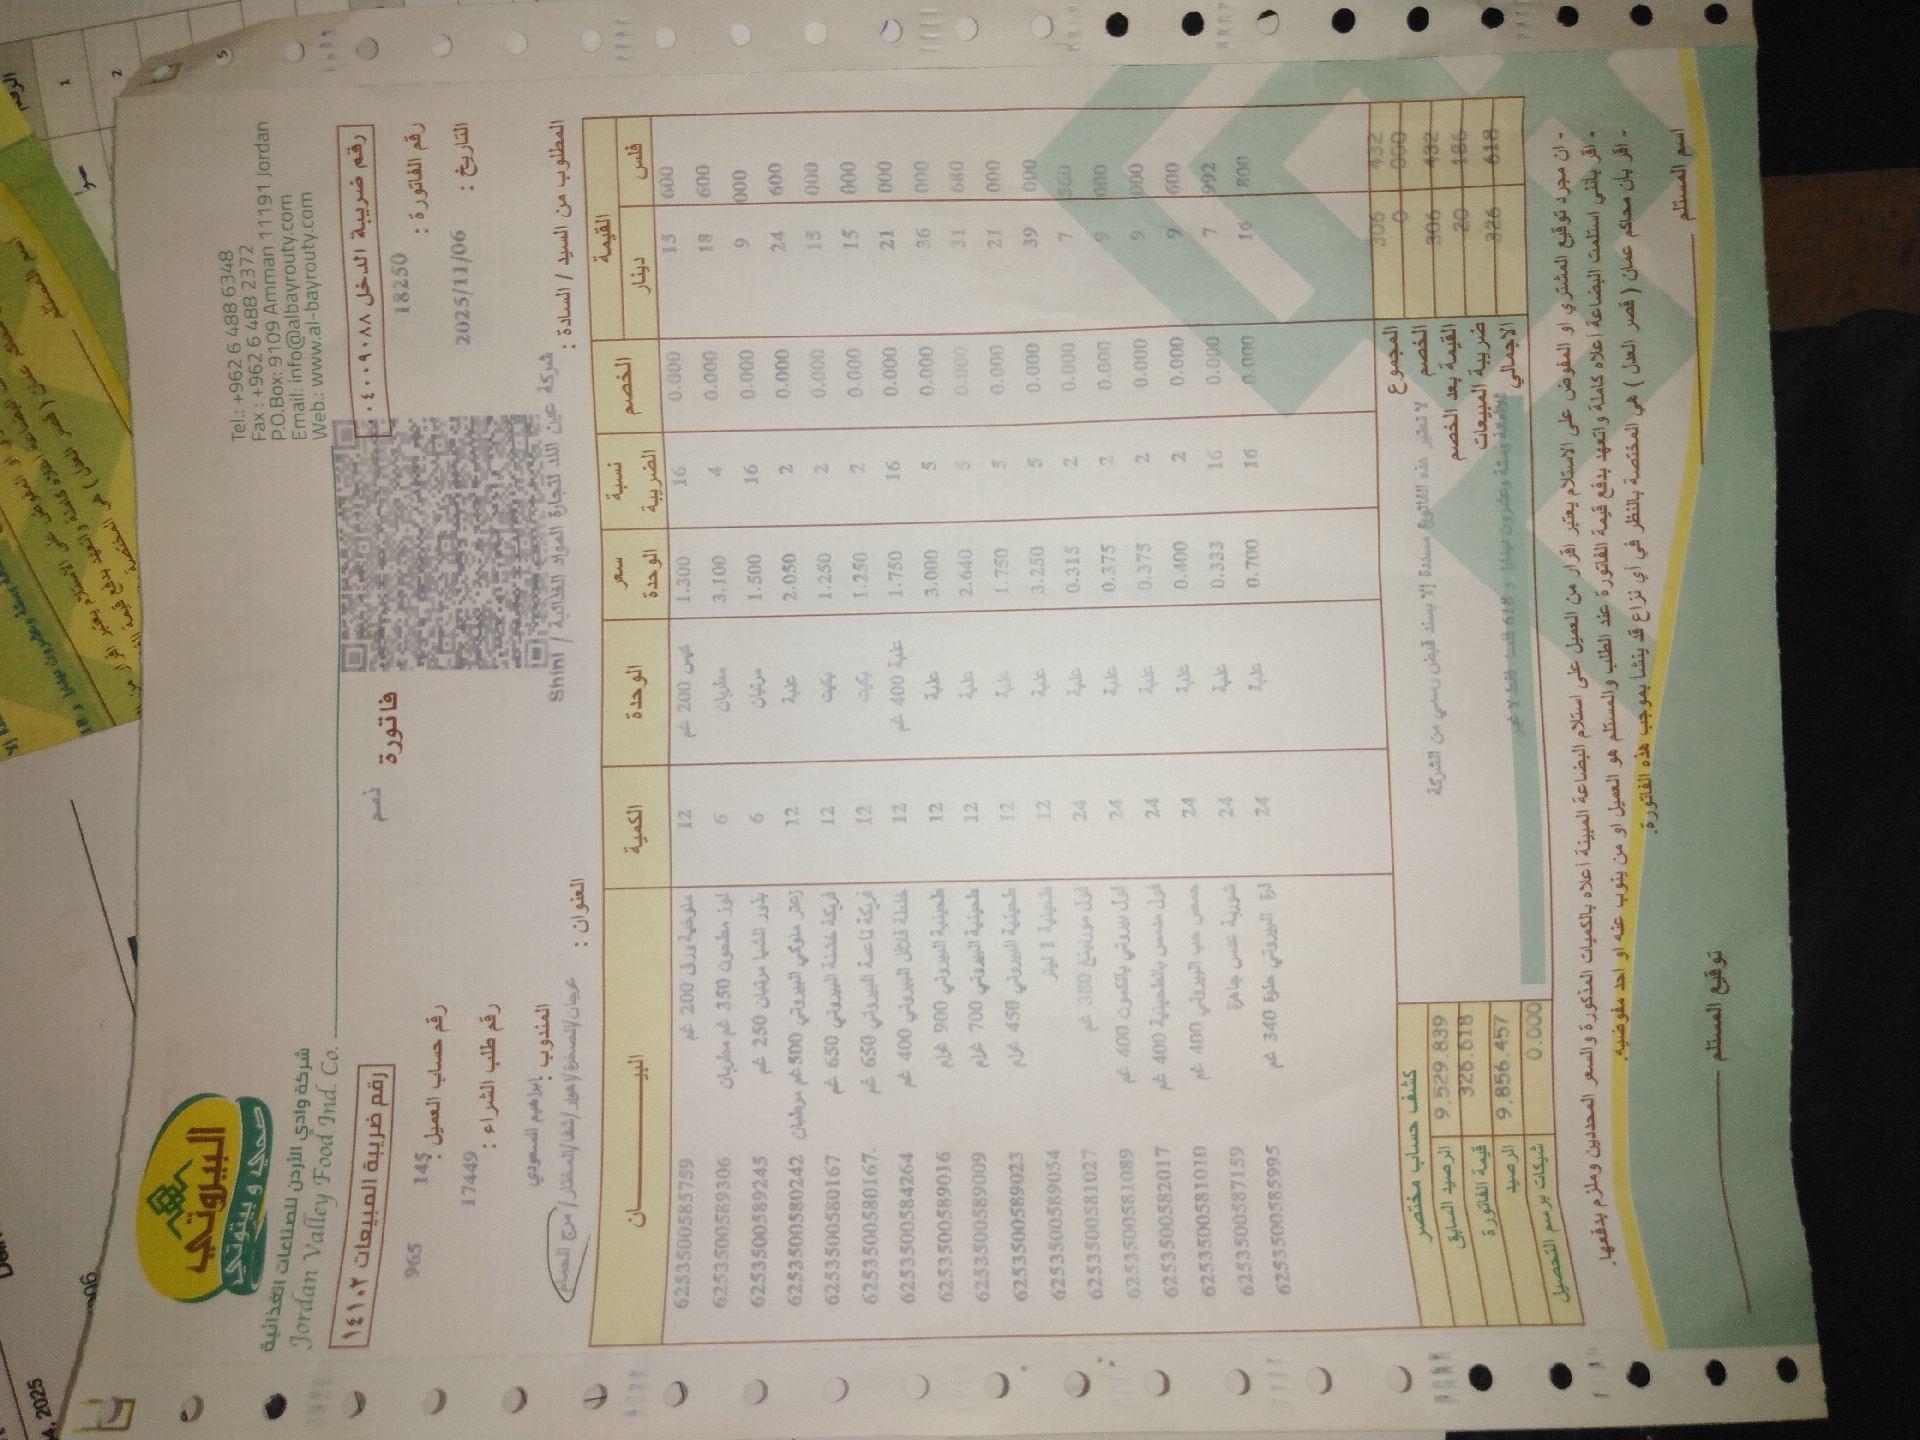 البيروتي
صحي و بيتوتي
شركة وادي الأردن للصناعات الغذائية
Jordan Valley Food Ind. Co.
Tel.: +962 6 488 6348
Fax : +962 6 488 2372
P.O.Box: 9109 Amman 11191 Jordan
Email: info@albayrouty.com
Web.: www.al-bayrouty.com
رقم ضريبة المبيعات ١٤١٠٢
فاتورة
ذمم
رقم ضريبة الدخل ٠٤٠٠٩٠٨٨
965 145 رقم حساب العميل :
رقم الفاتورة : 18250
17449 رقم طلب الشراء :
التاريخ : 2025/11/06
المندوب : ابراهيم السعودي
المطلوب من السيد / السادة : شركة عين اللد لتجارة المواد الغذائية / Shini
العنوان : عرجان/الصخرة/اهوز/شفا/المختار/مرج الحمام
البيـــــان الكمية الوحدة سعر الوحدة نسبة الضريبة الخصم القيمة دينار فلس
6253500585759 ملوخية ورق 200 غم 12 كيس 200 غم 1.300 16 0.000 15 600
6253500589306 لوز مطحون 350 غم مطربان 6 مطربان 3.100 4 0.000 18 600
6253500589245 بذور الشيا مرتبان 250 غم 6 مرتبان 1.500 16 0.000 9 000
6253500580242 زعتر ملوكي البيروتي 500 غم مرطبان 12 علبة 2.050 2 0.000 24 600
6253500580167 فريكة خشنة البيروتي 650 غم 12 بكيت 1.250 2 0.000 15 000
6253500580167. فريكة ناعمة البيروتي 650 غم 12 بكيت 1.250 2 0.000 15 000
6253500584264 خلطة فلافل البيروتي 400 غم 12 علبة 400 غم 1.750 16 0.000 21 000
6253500589016 طحينية البيروتي 900 غرام 12 علبة 3.000 5 0.000 36 000
6253500589009 طحينية البيروتي 700 غرام 12 علبة 2.640 5 0.000 31 680
6253500589023 طحينية البيروتي 450 غرام 12 علبة 1.750 5 0.000 21 000
6253500589054 طحينية 1 ليتر 12 علبة 3.250 5 0.000 39 000
6253500581027 فول مورنينغ 380 غم 24 علبة 0.315 2 0.000 7 560
6253500581089 فول بيروتي بالكمون 400 غم 24 علبة 0.375 2 0.000 9 000
6253500582017 فول مدمس بالطحينية 400 غم 24 علبة 0.375 2 0.000 9 000
6253500581010 حمص حب البيروتي 400 غم 24 علبة 0.400 2 0.000 9 600
6253500587159 شوربة عدس جاهزة 24 علبة 0.333 16 0.000 7 992
6253500585995 ذرة البيروتي حلوة 340 غم 24 علبة 0.700 16 0.000 16 800
كشف حساب مختصر
الرصيد السابق 9,529.839
قيمة الفاتورة 326.618
الرصيد 9,856.457
شيكات برسم التحصيل 0.000
لا تعتبر هذه الفاتورة مسددة إلا بسند قبض رسمي من الشركة
ثلاثمائة وستة وعشرون دينارا و 618 فلسا فقط لا غير
المجموع 306 432
الخصم 0 000
القيمة بعد الخصم 306 432
ضريبة المبيعات 20 186
الاجمالي 326 618
- ان مجرد توقيع المشتري او المفوض على الاستلام يعتبر اقرار من العميل على استلام البضاعة المبينة أعلاه بالكميات المذكورة والسعر المحددين وملزم بدفعها.
- اقر بأنني استلمت البضاعة أعلاه كاملة واتعهد بدفع قيمة الفاتورة عند الطلب والمستلم هو العميل او من ينوب عنه او احد مفوضيه.
- اقر بان محاكم عمان ( قصر العدل ) هي المختصة بالنظر في أي نزاع قد ينشأ بموجب هذه الفاتورة.
اسم المستلم
توقيع المستلم